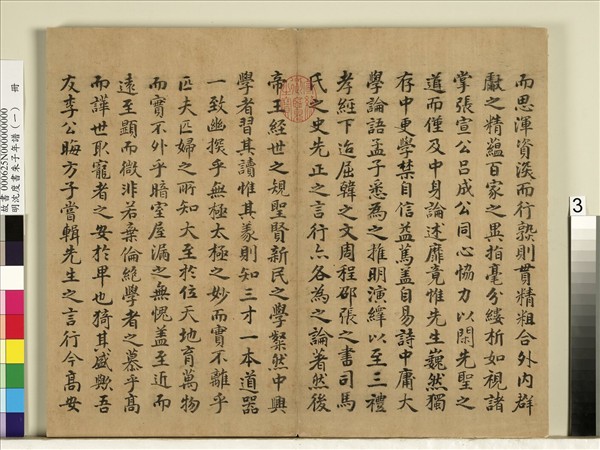 而思渾資深而行熟則貫精粗合外内群
獻之精蘊百家之異指毫分縷析如視諸
掌張宣公呂成公同心恊力以閑先聖之
道而僅及中身論述靡竟惟先生巍然獨
存中更學禁自信益篤蓋自易詩中庸大
學論語孟子悉為之推明演繹以至三禮
孝經下迨屈韓之文周程邵張之書司馬
氏之史先正之言行亦各為之論著然後
帝王經世之規聖賢新民之學粲然中興
學者習其讀惟其義則知三才一本道器
一致幽探乎無極太極之妙而實不離乎
匹夫匹婦之所知大至於位天地育萬物
而實不外乎暗室屋漏之無愧蓋至近而
遠至顯而微非若棄倫絶學者之慕乎高
而譁世取寵者之安於卑也猗其盛歟吾
友李公晦方子嘗輯先生之言行今高安
故書000625N000000000
明沈度書朱子年譜(一) 冊
3